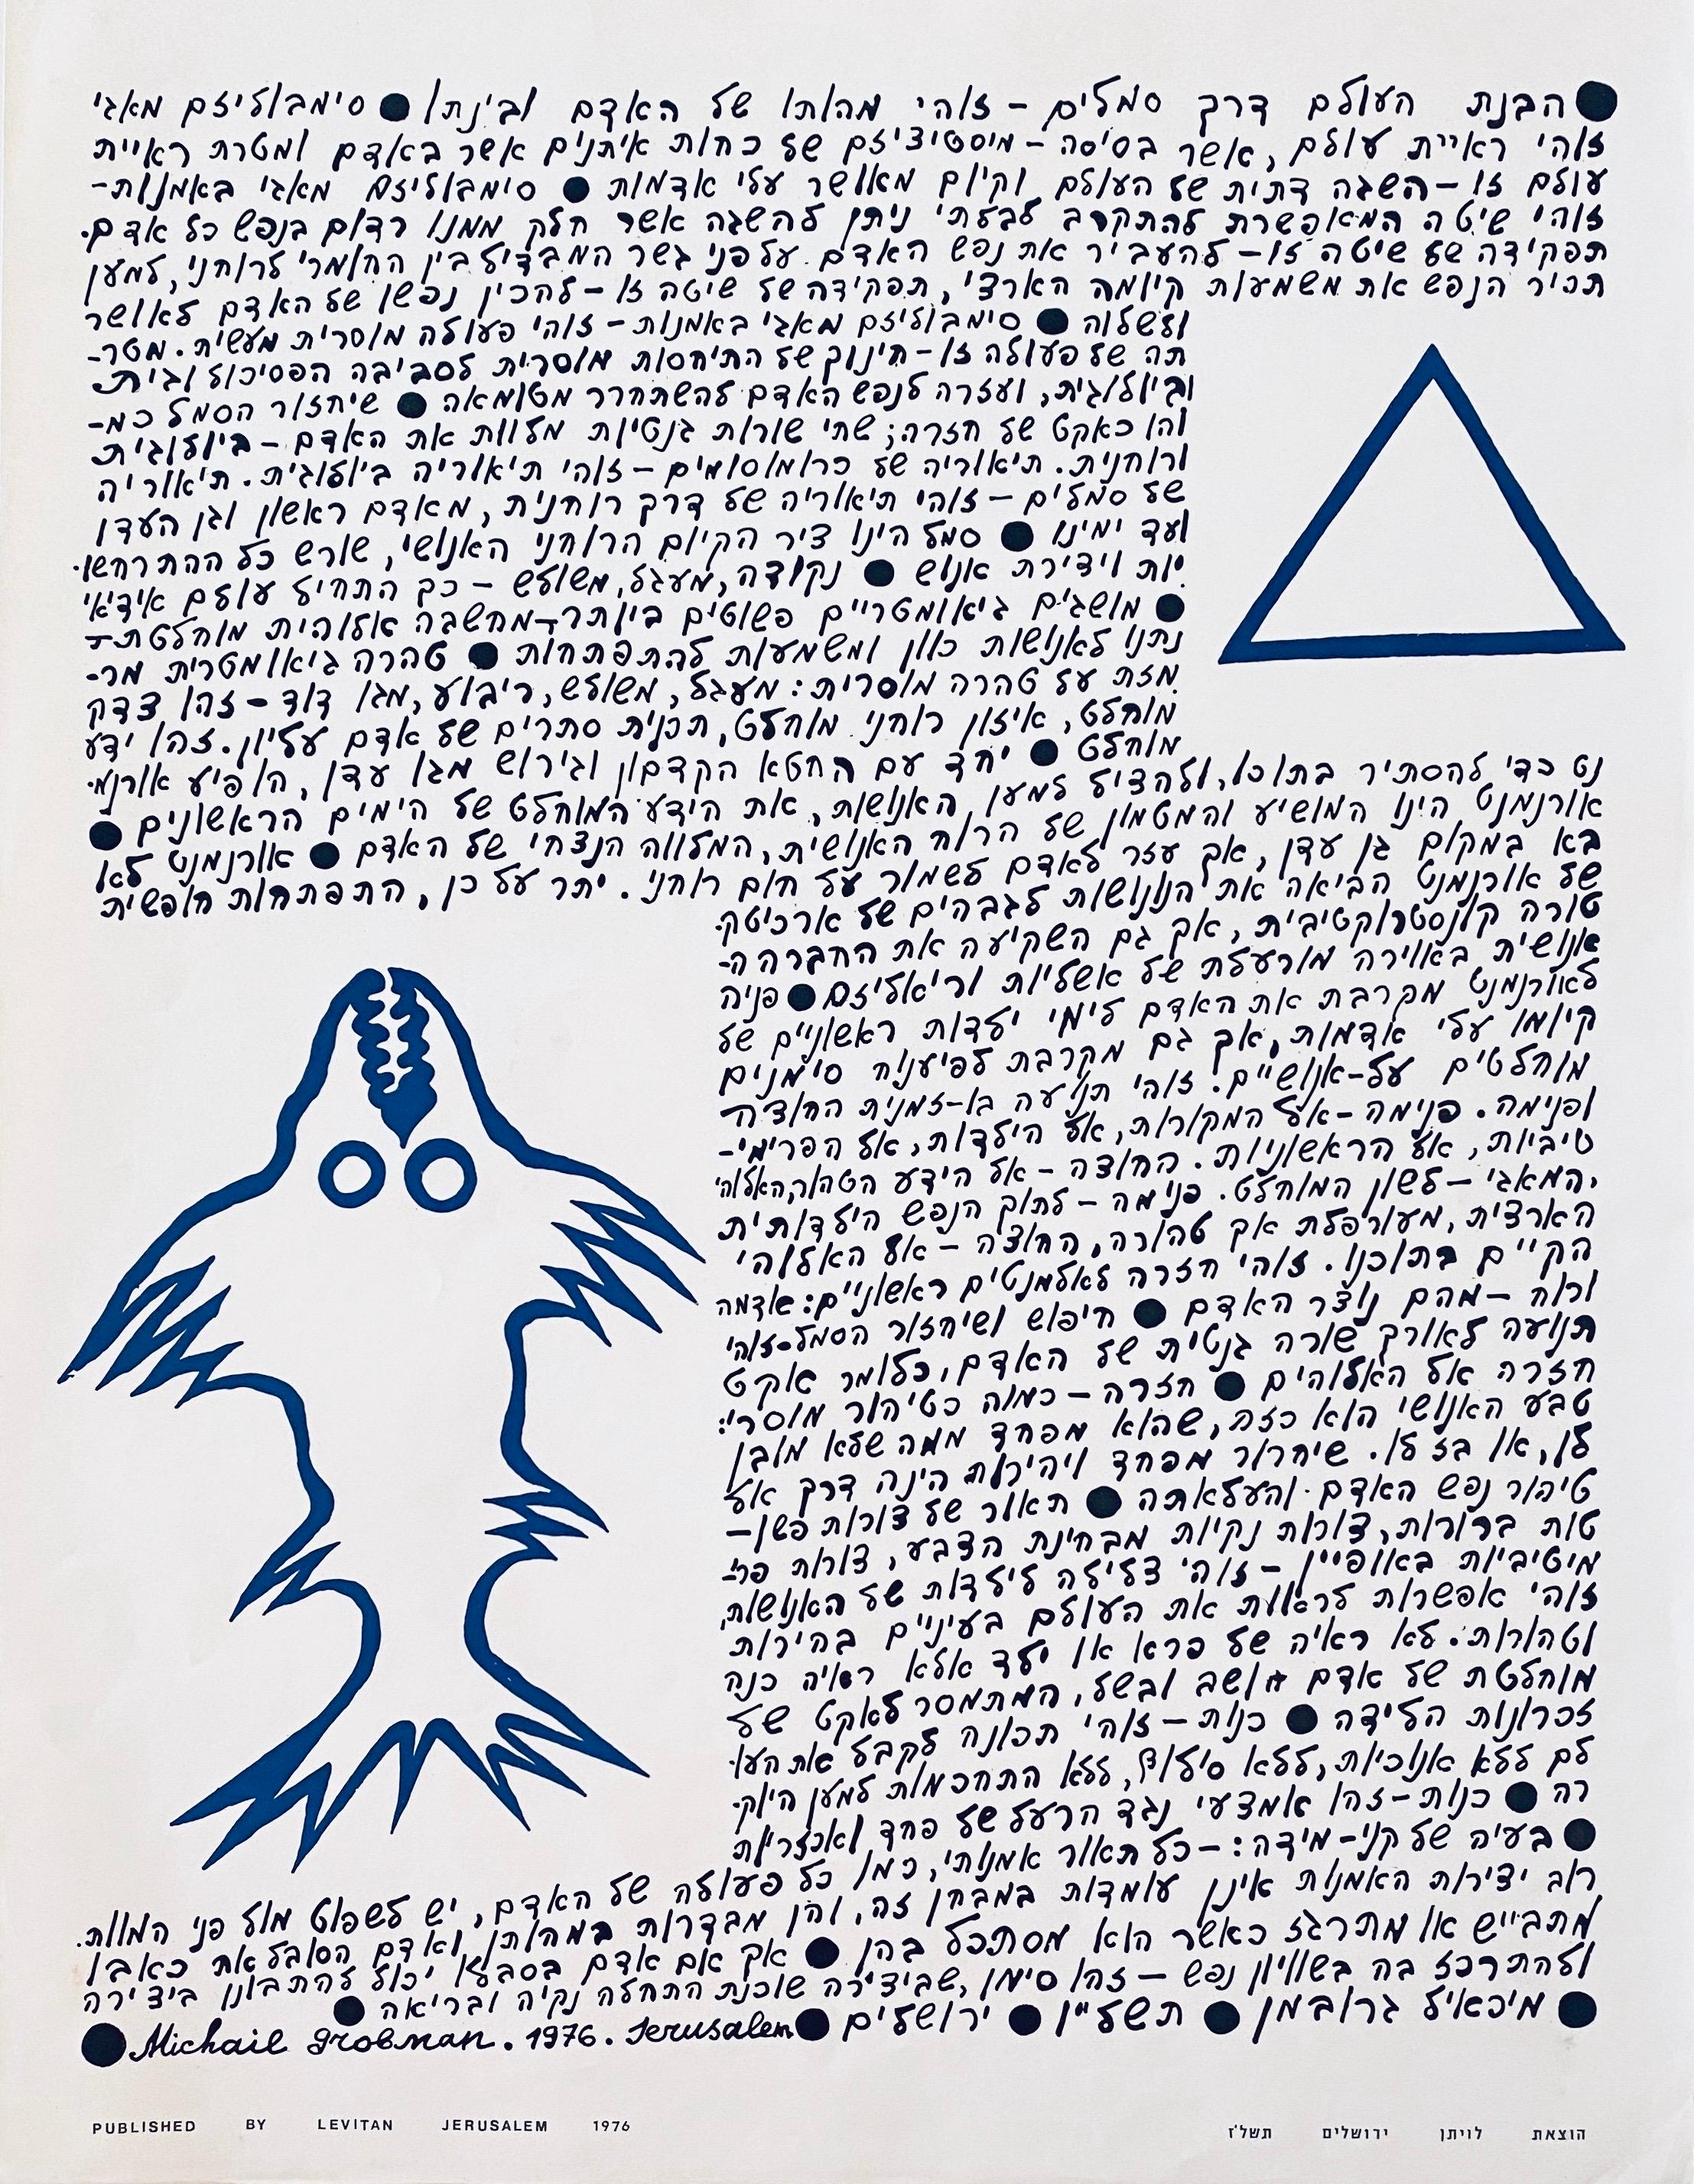 ● הבנת העולם דרך סמלים – זוהי מהותו של האדם ובינתו ● סימבוליזם מאגי
זוהי ראיית עולם, אשר בסיסה – מיסטיציזם של כחות איתנים אשר באדם ומטרת ראיית
עולם זו – השגה דתית של העולם וקיום מאושר עלי אדמות ● סימבוליזם מאגי באמנות –
זוהי שיטה המאפשרת להתקרב לבלתי ניתן להשגה אשר חלק ממנו רדום בנפש כל אדם.
תפקידה של שיטה זו – להעביר את נפש האדם על פני גשר המבדיל בין החומרי לרוחני, למען
תכיר הנפש את משמעות קיומה הארצי, תפקידה של שיטה זו – להכין נפשו של האדם לאושר
ולשלוה ● סימבוליזם מאגי באמנות – זוהי פעולה מוסרית מעשית. מטר-
תה של פעולה זו – חינוך של התיחסות מוסרית לסביבה הפסיכולוגית.
וביולוגית, ועזרה לנפש האדם להשתחרר מטומאה ● שיחזור הסמל כמ-
והו כאקט של חזרה; שתי שורות גנטיות מלוות את האדם – ביולוגית
ורוחנית. תיאוריה של כרומוסומים – זוהי תיאוריה ביולוגית. תיאוריה
של סמלים – זוהי תיאוריה של דרך רוחנית, מאדם ראשון וגן העדן
ועד ימינו ● סמל הינו ציר הקיום הרוחני האנושי, שורש כל ההתרחשו-
יות וידירת אנוש ● נקודה, מעגל, משולש – כך התחיל עולם אידיאי
● מושגים גיאומטריים פשוטים ביותר – מחשבה אלוהית מוחלטת –
נתנו לאנושות כוון ומשמעות להתפתחות ● טהרה גיאומטרית מר-
מזת על טהרה מוסרית: מעגל, משולש, ריבוע, מגן דוד – זהו צדק
מוחלט, איזון רוחני מוחלט, תכנית סתרים של אדם עליון. זהו ידע
מוחלט ● יחד עם החטא הקדמון וגירוש מגן עדן, הופיע אורנמ-
נט כדי להסתיר בתוכו, ולהציל למען האנושות, את הידע המוחלט של הימים הראשונים ●
אורנמנט הינו המושיע והמטמון של הרוח האנושית, המלווה הנצחי של האדם ● אורנמנט לא
בא במקום גן עדן, אך עזר לאדם לשמור על חום רוחני. יתר על כן, התפתחות חופשית
של אורנמנט הביאה את האנושות לגבהים של ארכיטק-
טורה קונסטרוקטיבית, אך גם השקיעה את החברה ה-
אנושית באווירה מורעלת של אשליות וריאליזם ● פניה
לאורנמנט מקרבת את האדם לימי ילדות ראשוניים של
קיומו עלי אדמות, אך גם מקרבת לפיענוח סימנים
מוחלטים על-אנושיים. זוהי תנועה בו-זמנית החוצה
ופנימה. פנימה – אל המקורות, אל הילדות, אל הפרימי-
טיביות, אל הראשוניות. החוצה – אל הידע הטהור, האלוהי
המאגי – לשון המוחלט. פנימה – לתוך הנפש הילדותית
הארצית, מעורפלת אך טהורה, החוצה – אל האלוהי
הקיים בתוכנו. זוהי חזרה לאלמנטים ראשוניים: אדמה
ורוח – מהם נוצר האדם ● חיפוש ושיחזור הסמל – זוהי
תנועה לאורך שורה גנטית של האדם, כלומר אקט
חזרה אל האלוהים ● חזרה – כמוה כטיהור מוסרי:
טבע האנושי הוא כזה, שהוא מפחד ממה שלא מובן
לו, או בז לו. שיחרור מפחד ויהירות הינה דרך אל
טיהור נפש האדם והעלאתה ● תאור של צורות פשו-
טות ברורות, צורות נקיות מבחינת הצבע, צורות פר-
מיטיביות באופיין – זוהי צלילה לילדות של האנושות,
זוהי אפשרות לראות את העולם בעיניים בהירות
וטהורות. לא ראיה של פרא או ילד אלא ראיה כנה
מוחלטת של אדם חושב ובשל, המתמסר לאקט של
זכרונות הלידה ● כנות – זוהי תכונה לקבל את העו-
לם ללא אנוכיות, ללא סילוף, ללא התחכמות למען היוק-
רה ● כנות – זהו אמצעי נגד הרעל של פחד ואכזריות
● בעיה של קני-מידה: – כל תאור אמנותי, כמו כל פעולה של האדם, יש לשפוט מול פני המוות.
רוב יצירות האמנות אינן עומדות במבחן זה, והן מבדרות במהותן, ואדם הסובל את כאבו
מתבייש או מתרגז כאשר הוא מסתכל בהן ● אך אם אדם בסבלו יכול להתבונן ביצירה
ולהתרכז בה בשוויון נפש – זהו סימן, שביצירה שוכנת התחלה נקיה ובריאה ●
● מיכאיל גרובמן ● תשל"ו ● ירושלים ● Michail Grobman. 1976. Jerusalem ●
PUBLISHED BY LEVITAN JERUSALEM 1976
הוצאת לויתן ירושלים תשל'ז